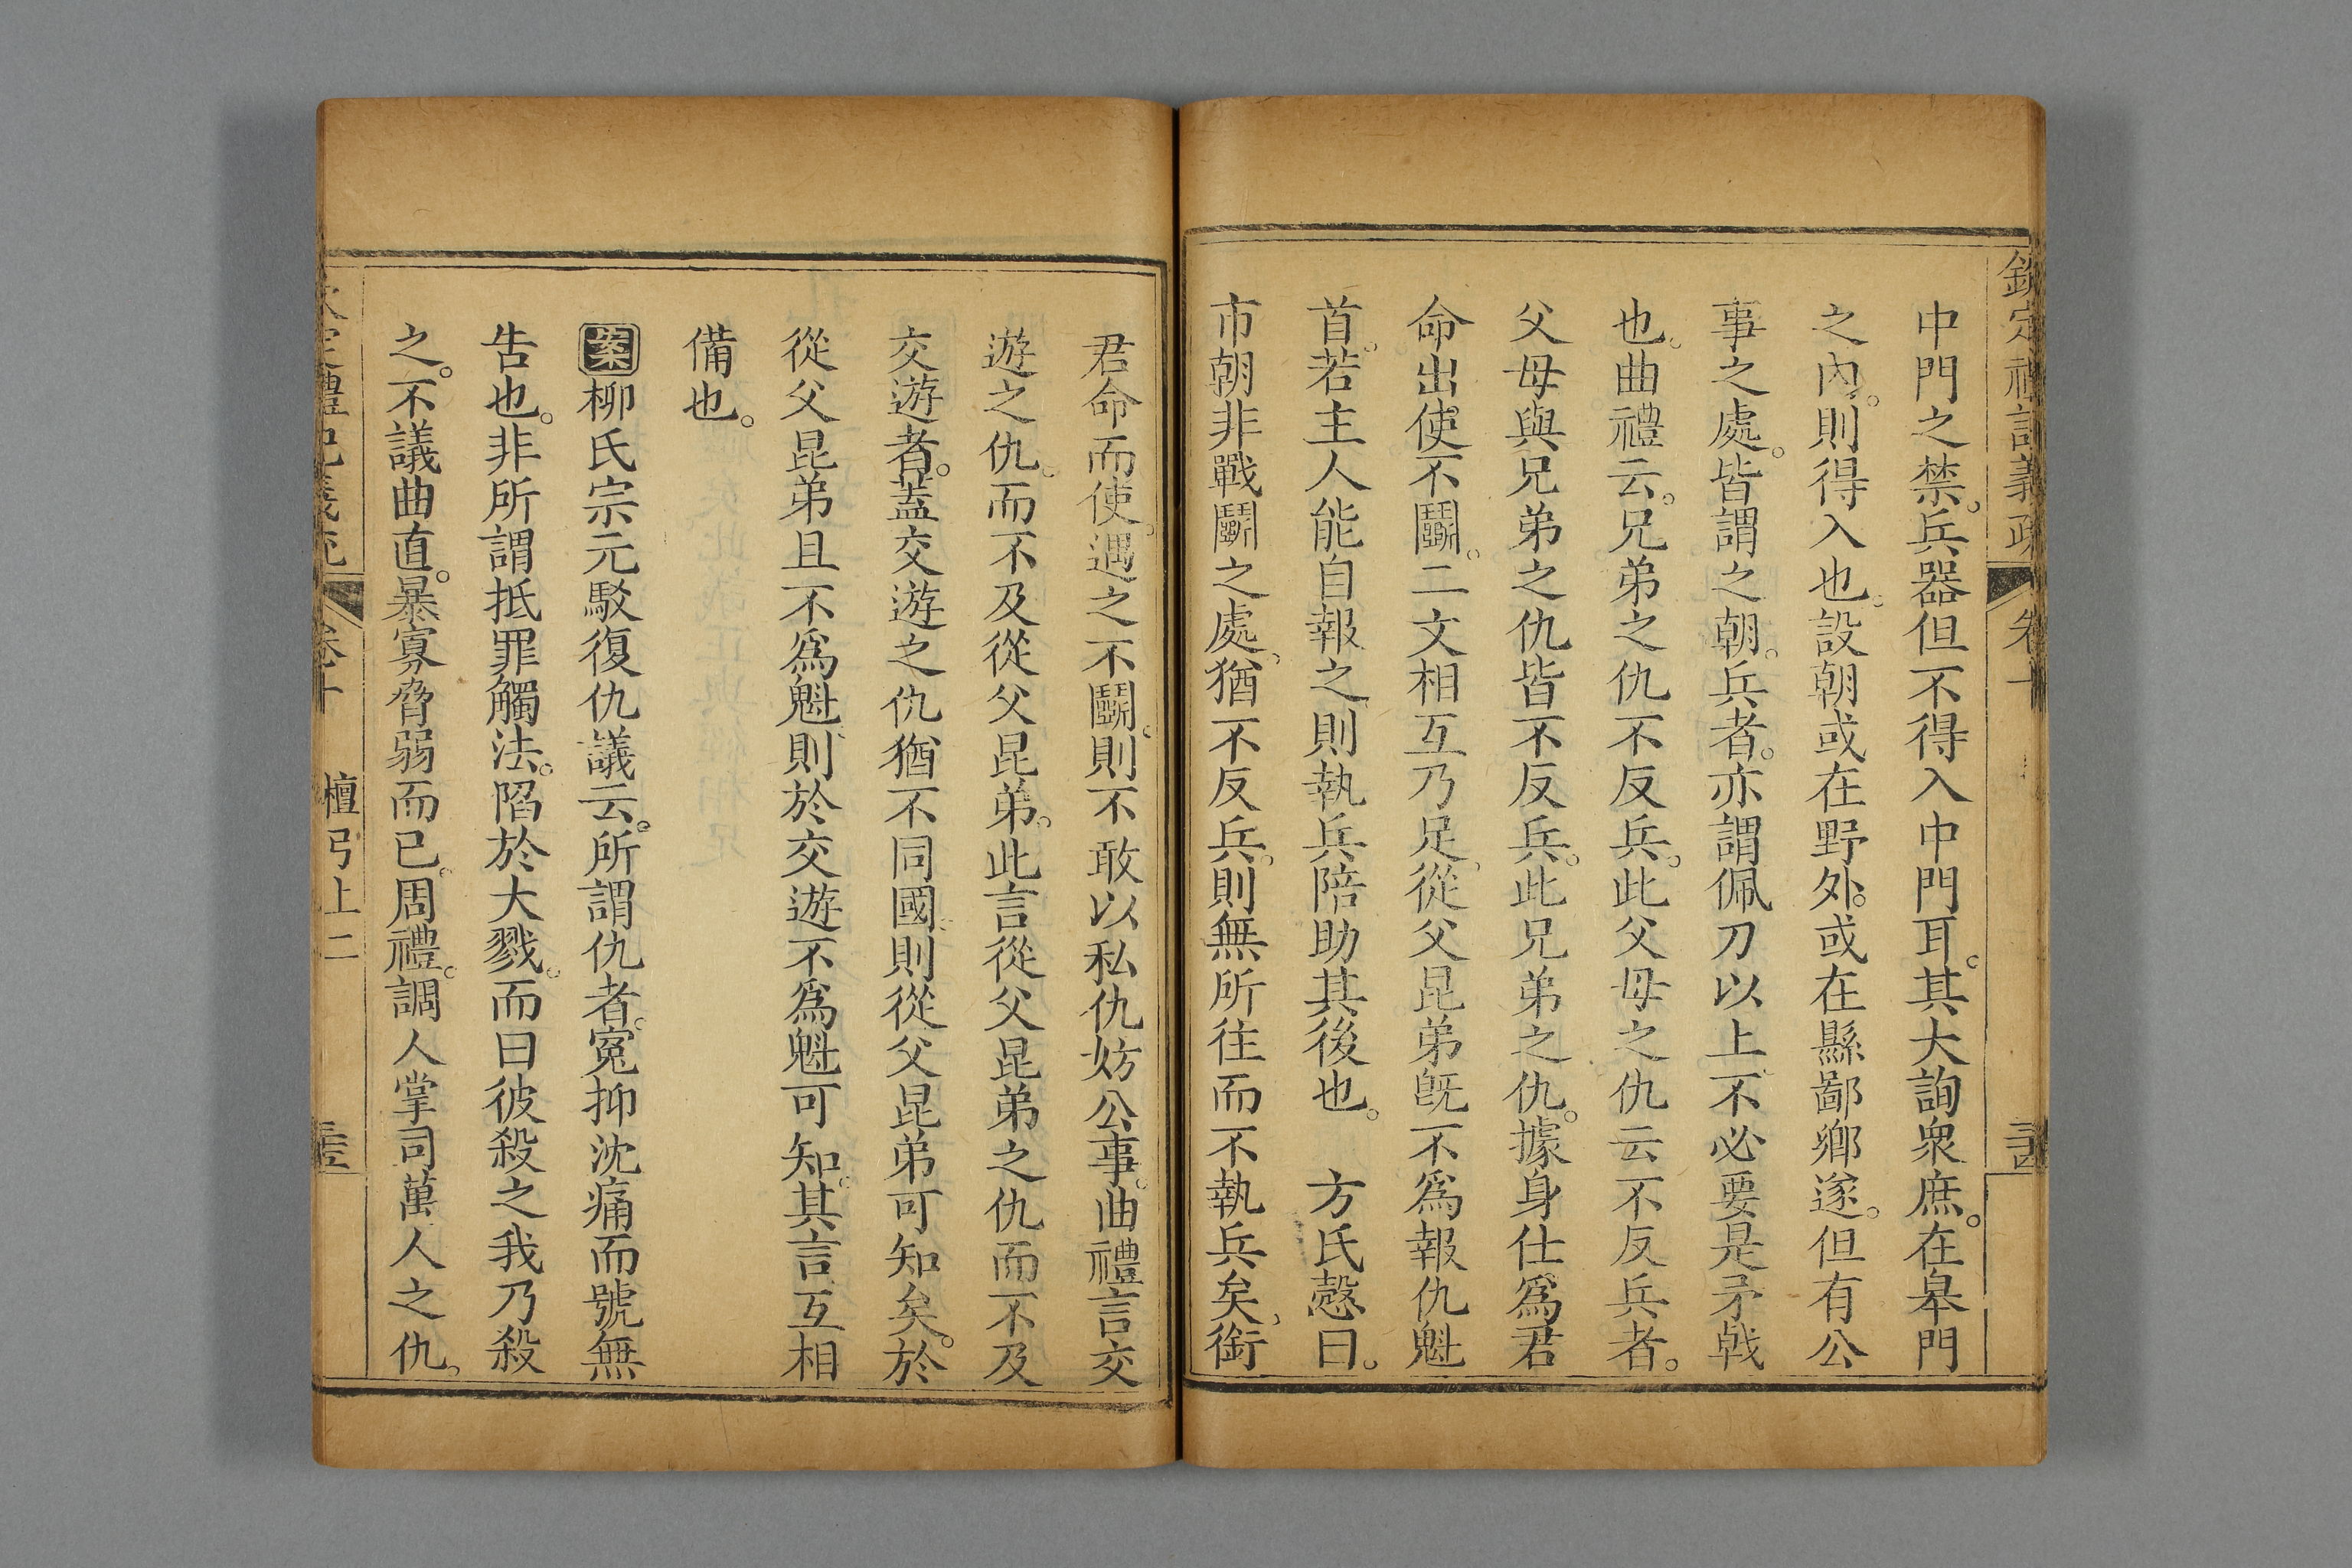 欽定禮記義疏 卷十
中門之禁。兵器但不得入中門耳。其大詢衆庶。在皋門
之內。則得入也。設朝或在野外。或在縣鄙鄉遂。但有公
事之處。皆謂之朝。兵者。亦謂佩刀以上。不必要是矛戟
也。曲禮云。兄弟之仇不反兵。此父母之仇云不反兵者。
父母與兄弟之仇皆不反兵。此兄弟之仇。據身仕爲君
命出使。不鬭。二文相互乃足。從父昆弟旣不爲報仇魁
首。若主人能自報之。則執兵陪助其後也。 方氏慤曰。
市朝非戰鬭之處。猶不反兵。則無所往而不執兵矣。銜
君命而使。遇之不鬭。則不敢以私仇妨公事。曲禮言交
遊之仇。而不及從父昆弟。此言從父昆弟之仇而不及
交遊者。蓋交遊之仇猶不同國。則從父昆弟可知矣。於
從父昆弟且不爲魁。則於交遊不爲魁可知。其言互相
備也。
案柳氏宗元駁復仇議云。所謂仇者。冤抑沈痛而號無
告也。非所謂抵罪觸法。陷於大戮。而曰彼殺之我乃殺
之。不議曲直。暴寡脅弱而已。周禮。調人掌司萬人之仇。
欽定禮記義疏 卷十 檀弓上二